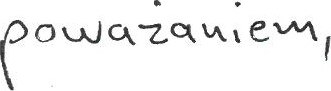 poważaniem,